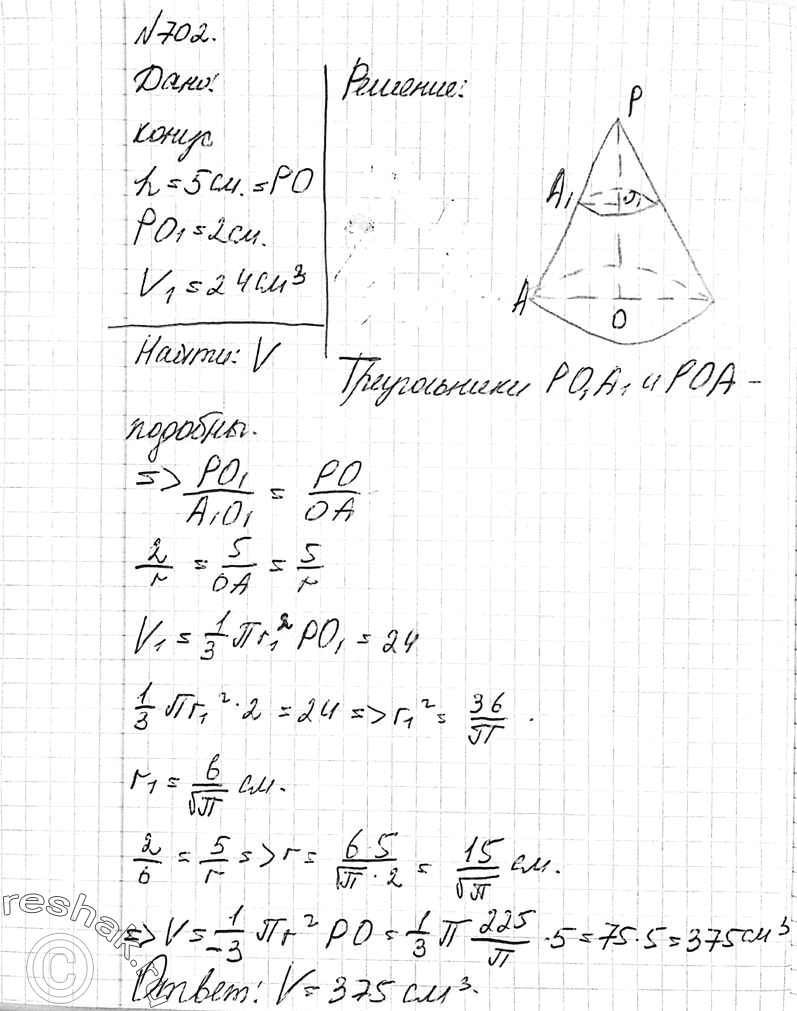 №702.
Дано:
конус
h = 5 см. = PO
PO₁ = 2 см.
V₁ = 24 см³
Найти: V
Решение:
P
A₁ O₁
A
O
Треугольники PO₁A₁ и POA –
подобны.
=> PO₁/A₁O₁ = PO/OA
2/r = 5/OA = 5/r
V₁ = 1/3 πr₁² PO₁ = 24
1/3 πr₁² · 2 = 24 => r₁² = 36/π .
r₁ = 6/√π см.
2/6 = 5/r => r = 6 5/√π · 2 = 15/√π см.
=> V = 1/3 πr² PO = 1/3 π 225/π · 5 = 75 · 5 = 375 см³
Ответ: V = 375 см³.
reshak.ru
©